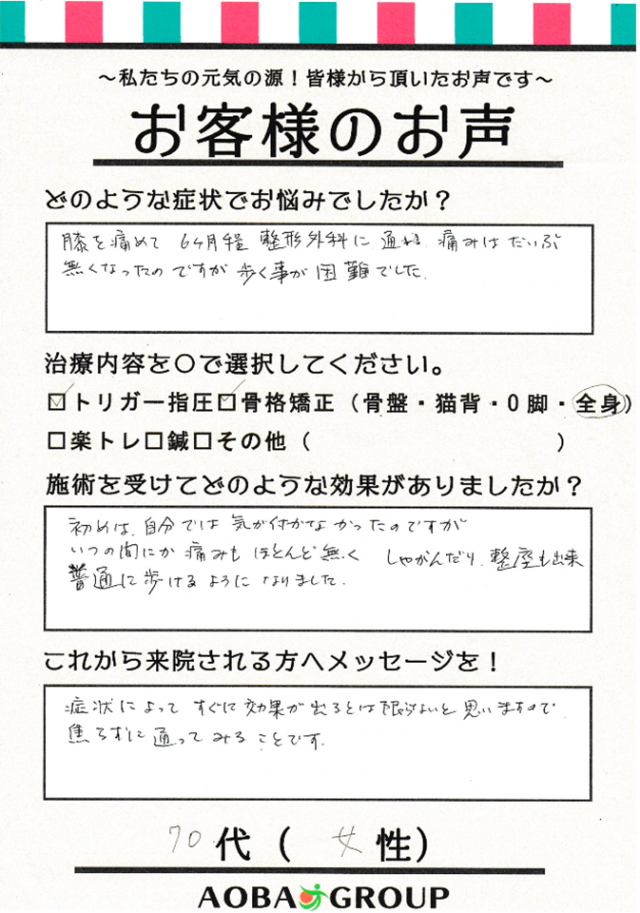 ～私たちの元気の源！皆様から頂いたお声です～
お客様のお声
どのような症状でお悩みでしたか？
膝を痛めて 6ヶ月程 整形外科に通い、痛みはだいぶ
無くなったのですが 歩く事が困難でした。
治療内容を〇で選択してください。
☑トリガー指圧☑骨格矯正（骨盤・猫背・O脚・全身）
□楽トレ□鍼□その他（　　　　　　　　　　）
施術を受けてどのような効果がありましたか？
初めは、自分では気が付かなかったのですが
いつの間にか痛みもほとんど無く しゃがんだり、整座も出来
普通に歩けるようになりました。
これから来院される方へメッセージを！
症状によって すぐに効果が出るとは限らないと思いますので
焦らずに通ってみることです。
70代（女性）
AOBA GROUP